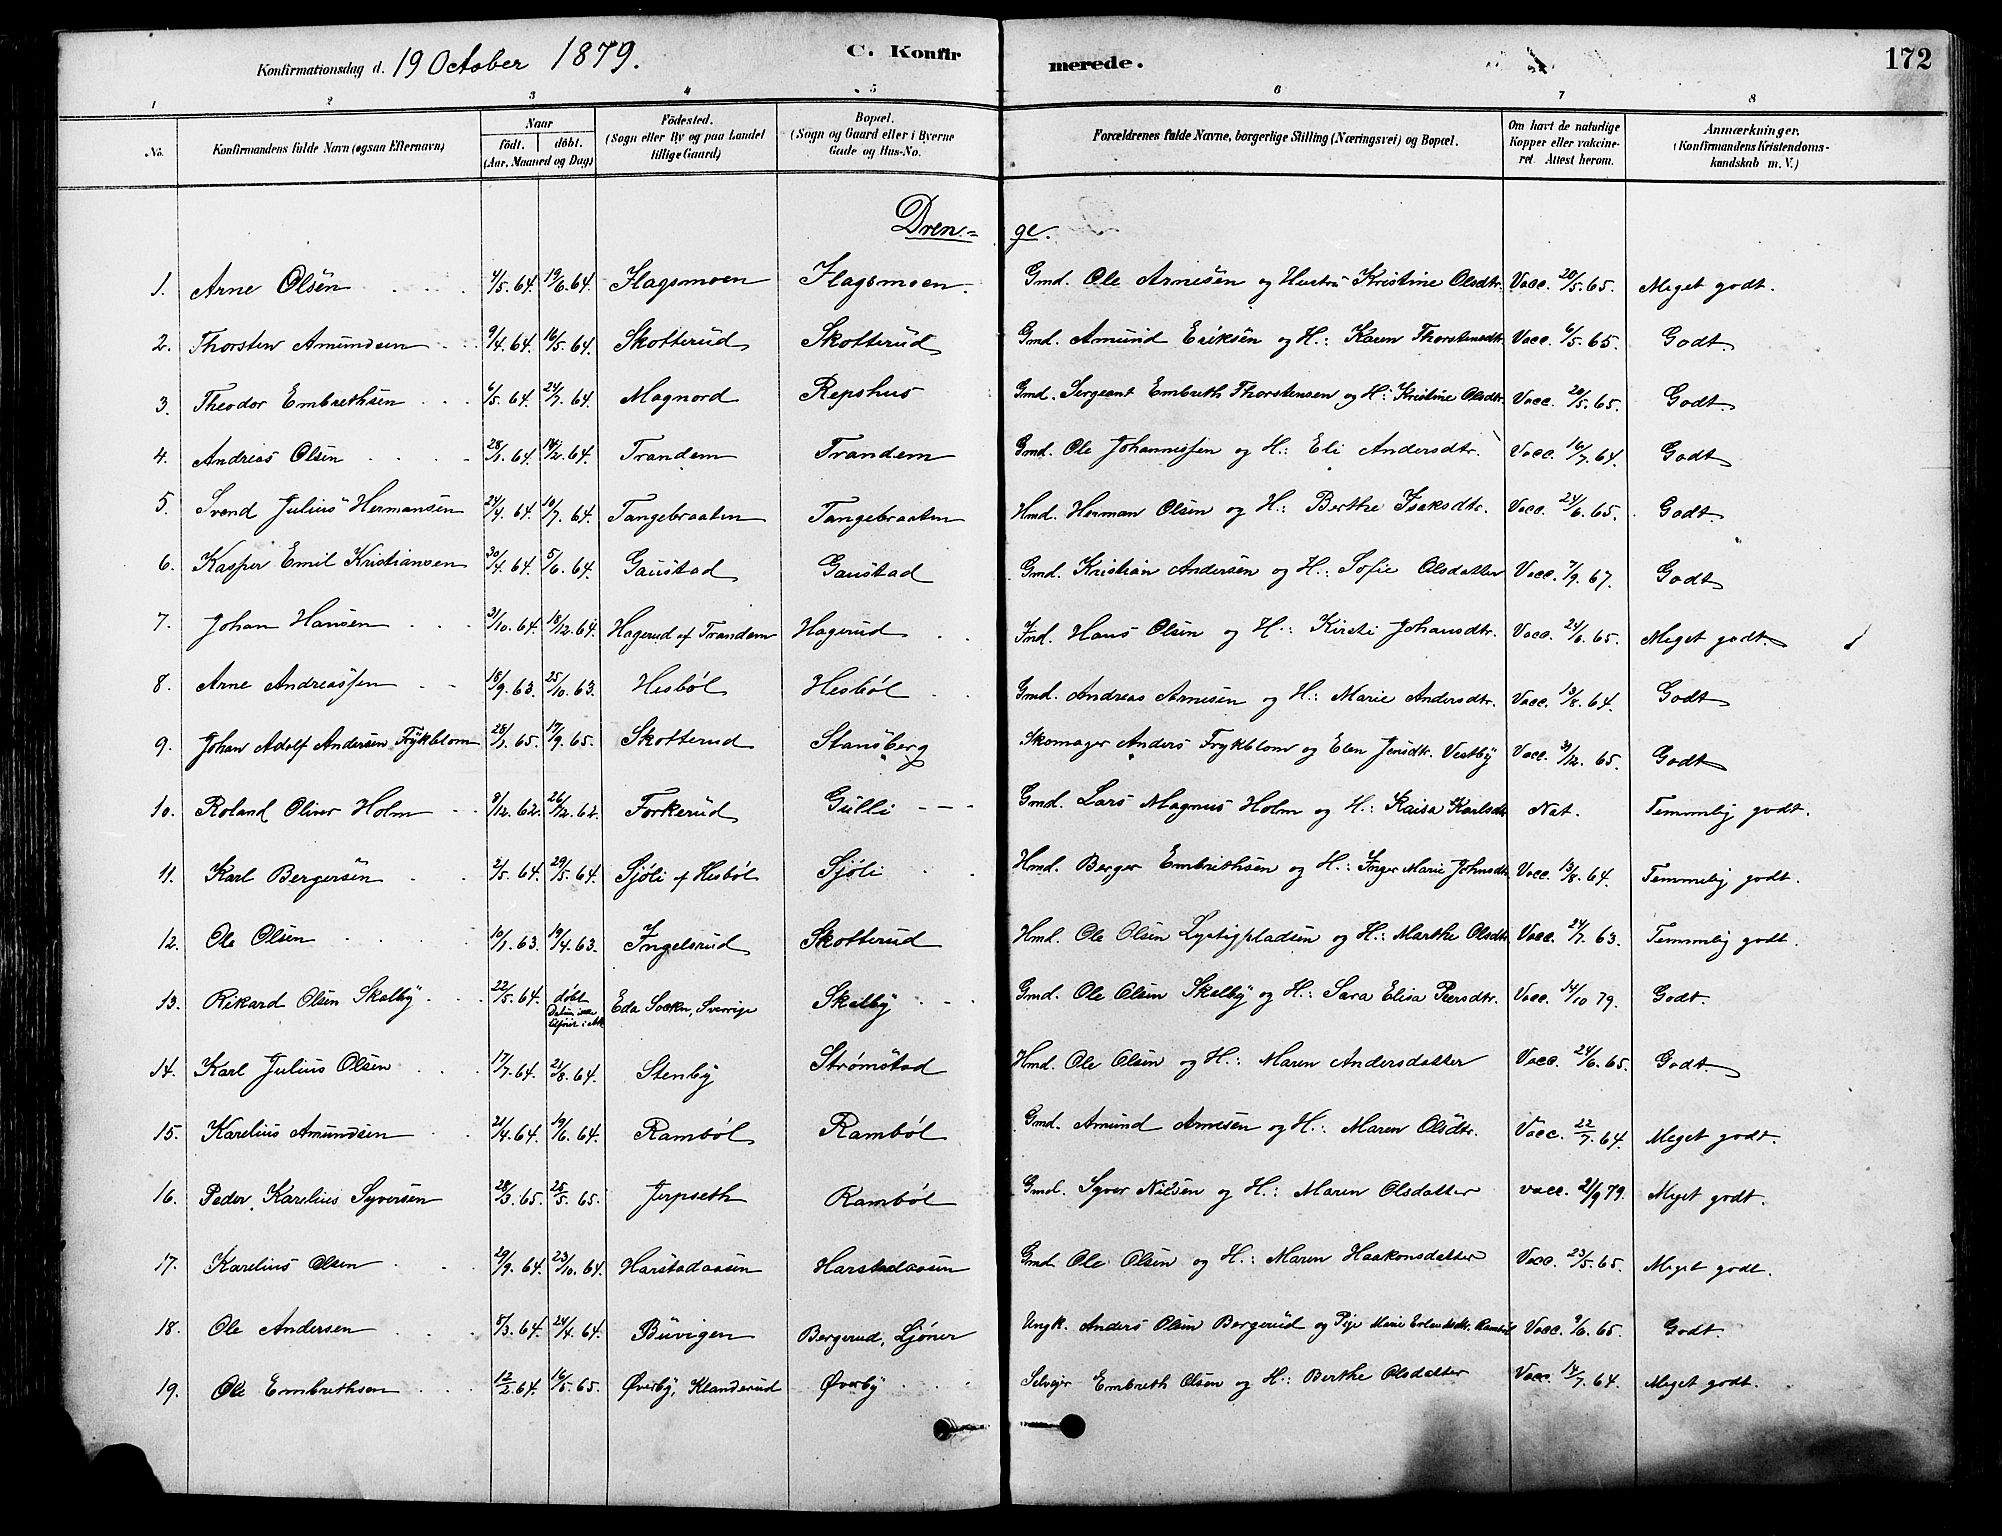 Konfirmationsdag d. 19 October 1879. C. Konfirmerede. 172
1 2 3 4 5 6 7 8
No. Konfirmandens fulde Navn (ogsaa Efternavn) Naar født. døbt. (Aar, Maaned og Dag) Födested. (Sogn eller By og paa Landet tillige Gaard) Bopæl. (Sogn og Gaard eller i Byerne Gade og Hus-No. Forældrenes fulde Navne, borgerlige Stilling (Næringsvei) og Bopæl. Om havt de naturlige Kopper eller vakcineret. Attest herom. Anmærkninger. (Konfirmandens Kristendomskundskab m. V.)
Dren=ge.
1. Arne Olsen 4/5.64. 19/6.64. Hagsmoen Hagsmoen. Gmd. Ole Arnesen og Hustru Kristine Olsdtr. Vacc. 20/5.65. Meget godt.
2. Thorsten Amundsen 9/4.64. 16/5.64. Skotterud Skotterud Gmd. Amund Eriksen og H.: Karen Thorstensdtr. Vacc. 6/5.65. Godt
3. Theodor Embrethsen 6/5.64. 24/7.64. Magnord Repshus Gmd. Sergeant Embreth Thorstensen og H.: Kristine Olsdtr. Vacc. 20/5.65. Godt.
4. Andreas Olsen 28/1.64. 14/2.64. Trandem Trandem Gmd. Ole Johannesen og H.: Eli Andersdtr. Vacc. 16/7.64. Godt
5. Svend Julius Hermansen 24/4.64. 10/7.64. Tangebraaten Tangebraaten Hmd. Herman Olsen og H.: Berthe Isaksdtr. Vacc. 24/6.65. Godt.
6. Kasper Emil Kristiansen 30/4.64. 5/6.64. Gaustad Gaustad Gmd. Kristian Andersen og H.: Sofie Olsdatter Vacc. 7/9.67. Godt
7. Johan Hansen 31/10.64. 18/12.64. Hagerud af Trandem Hagerud Ind. Hans Olsen og H.: Kirsti Johansdtr. Vacc. 24/6.65. Meget godt.
8. Arne Andreassen 18/9.63. 25/10.63. Hesböl Hesböl Gmd. Andreas Arnesen og H.: Marie Andersdtr. Vacc. 13/8.64. Godt
9. Johan Adolf Andersen Frykblom 28/1.65. 17/9.65. Skotterud Stansberg Skomager Anders Frykblom og Elen Jensdtr. Vestby Vacc. 31/12.65. Godt
10. Roland Oliver Holm 8/12.62. 26/12.62. Forkerud Gulli Gmd. Lars Magnus Holm og H.: Kaisa Karlsdtr Nat. Temmelig godt.
11. Karl Bergersen 2/5.64. 29/5.64. Sjöli af Hesböl Sjöli Hmd. Berger Embrethsen og H.: Inger Marie Johnsdtr Vacc. 13/8.64. Temmelig godt.
12. Ole Olsen 10/1.63. 19/4.63. Ingelsrud Skotterud Hmd. Ole Olsen Lystigpladsen og H.: Marthe Olsdtr Vacc. 24/7.63. Temmelig godt.
13. Rikard Olsen Skalby 22/5.64. døbt Eda Socken, Sverrige Skalby Gmd. Ole Olsen Skalby og H.: Sara Elisa Persdtr. Vacc. 14/10 79. Godt.
14. Karl Julius Olsen 17/7.64. 21/8.64. Stenby Strømstad Hmd. Ole Olsen og H.: Maren Andersdatter Vacc. 24/6.65. Godt.
15. Karelius Amundsen 21/4.64. 19/6.64. Ramböl Ramböl Gmd. Amund Arnesen og H.: Maren Olsdtr. Vacc. 22/7.64. Meget godt.
16. Peder Karelius Syversen 28/3.65. 25/5.65. Jerpseth Ramböl Gmd. Syver Nilsen og H.: Maren Olsdatter vacc. 21/9 79. Meget godt.
17. Karelius Olsen 29/9.64. 23/10.64. Harstadaasen Harstadaasen Gmd. Ole Olsen og H.: Maren Haakonsdatter Vacc. 23/5.65. Meget godt.
18. Ole Andersen 8/3.64. 24/4.64. Buvigen Bergerud, Ljöner Ungk. Anders Olsen Bergerud og Pige Marie Ramböl Vacc. 9/6.65. Godt.
19. Ole Embrethsen 12/2.64. 16/5.65. Øverby, Klanderud Øverby Selvejer Embreth Olsen og H.: Berthe Olsdatter Vacc. 14/7.64. Meget godt.